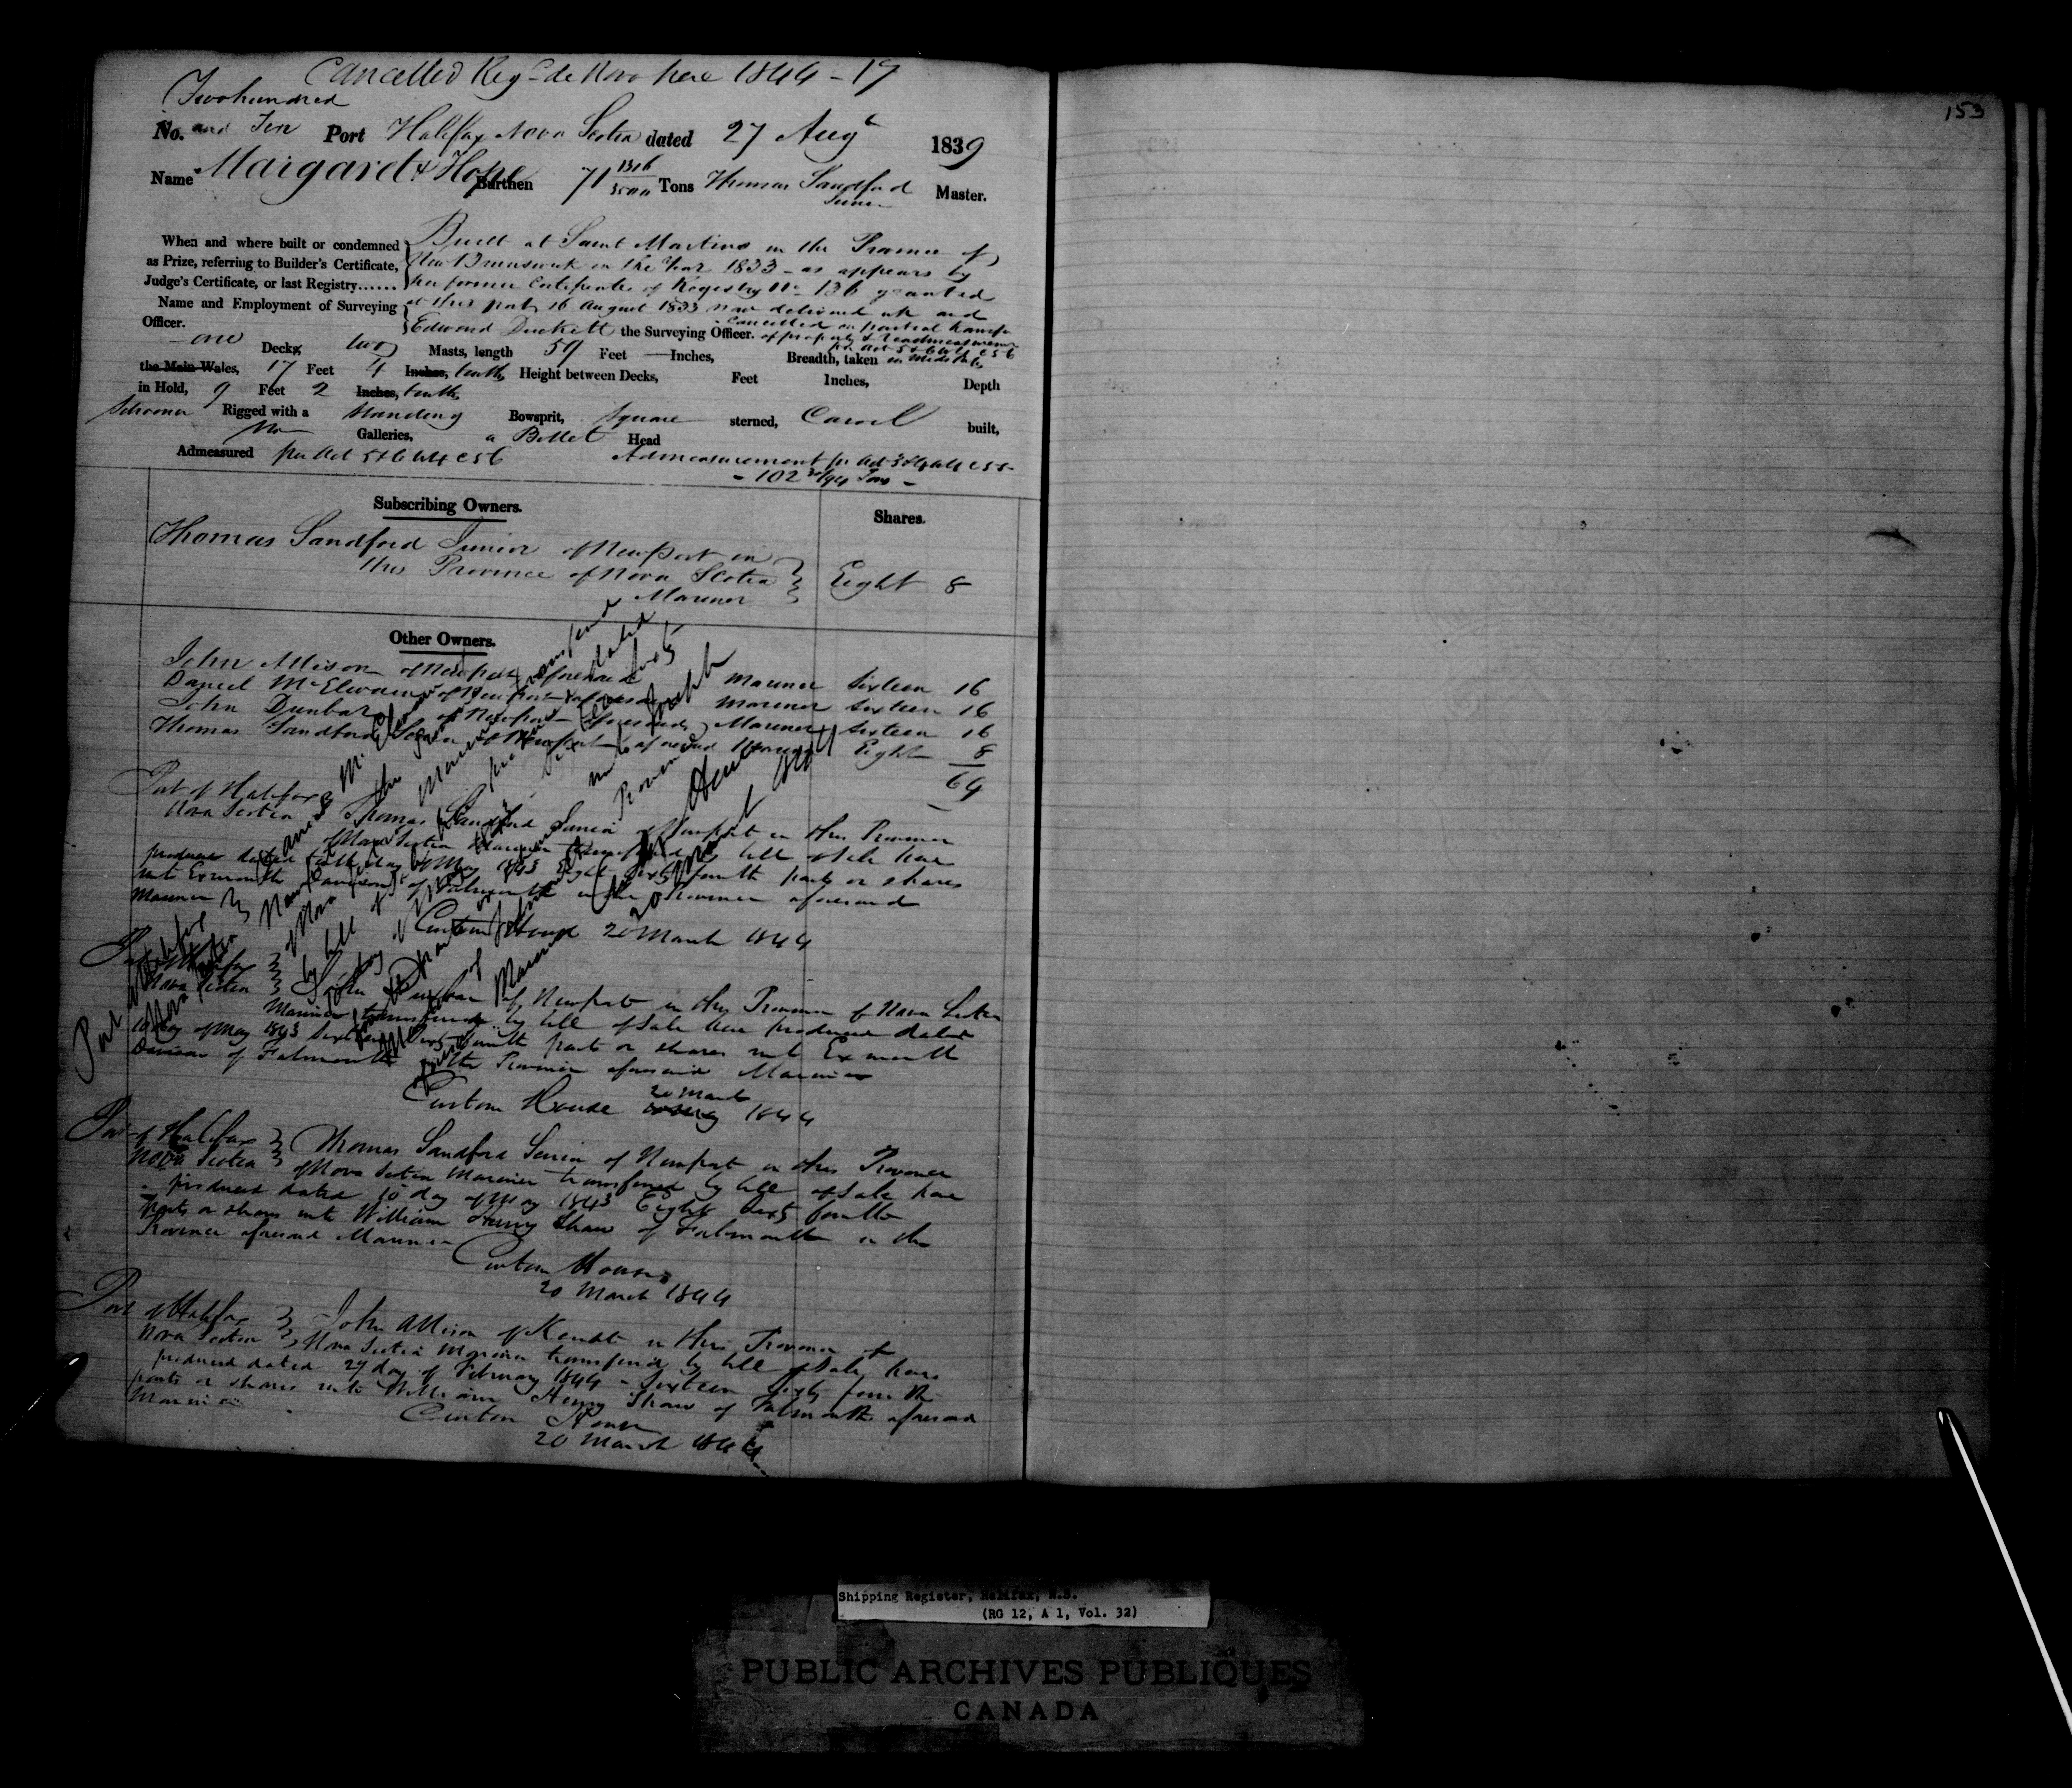 Cancelled Reg de Novo here 1844 - 17
153
Two hundred
No. and Ten Port Halifax Nova Scotia dated 27 Augt 1839
Name Margaret & Hope Burthen 71 1316/3500 Tons Thomas Sandford Junr Master.
When and where built or condemned
as Prize, referring to Builder's Certificate,
Judge's Certificate, or last Registry......
Built at Saint Martins in the Province of
New Brunswick in the Year 1833 - as appears by
her former Certificate of Registry No 136 granted
at this port 16 August 1833 now delivered up and
cancelled on partial transfer
of property & readmeasurement
Name and Employment of Surveying
Officer.
Edward Duckett the Surveying Officer.
per Act 5 & 6 W 4 C 56
one Decks two Masts, length 59 Feet — Inches, Breadth, taken in Midships
the Main Wales, 17 Feet 4 Inches, tenths Height between Decks, Feet Inches, Depth
in Hold, 9 Feet 2 Inches, tenths
Schooner Rigged with a Standing Bowsprit, Square sterned, Carvel built,
No Galleries, a Billet Head
Admeasured per Act 5 & 6 W 4 C 56 Admeasurement pr Act
- 102 Tons -
Subscribing Owners. Shares.
Thomas Sandford Junior of Newport in
this Province of Nova Scotia Eight 8
Mariner
Other Owners.
John Allison of Newport aforesaid Mariner Sixteen 16
Daniel McElwain of Newport aforesaid Mariner Sixteen 16
John Dunbar of Newport aforesaid Mariner Sixteen 16
Thomas Sandford Senior of Newport aforesaid Eight 8
64
Port of Halifax
Nova Scotia Thomas Sandford Junior of Newport in this Province
of Nova Scotia Mariner transferred by bill of Sale here
produced dated day of May 1843 Eight Sixty fourth parts or shares
unto Exmouth Davison of Falmouth in the Province aforesaid
Mariner
Custom House 20 March 1844
Port of Halifax
Nova Scotia John Dunbar of Newport in this Province of Nova Scotia
Mariner transferred by bill of Sale here produced dated
10 day of May 1843 Sixteen Sixty fourth parts or shares unto Exmouth
Davison of Falmouth in the Province aforesaid Mariner
20 March
Custom House 1844
Port of Halifax
Nova Scotia Thomas Sandford Senior of Newport in this Province
of Nova Scotia Mariner transferred by bill of Sale here
produced dated 10 day of May 1843 Eight Sixty fourth
parts or shares unto William Henry Shaw of Falmouth in the
Province aforesaid Mariner
Custom House
20 March 1844
Port of Halifax
Nova Scotia John Allison of Kempt in this Province of
Nova Scotia Mariner transferred by bill of Sale here
produced dated 29 day of February 1844 - Sixteen Sixty fourth
parts or shares unto William Henry Shaw of Falmouth aforesaid
Mariner
Custom House
20 March 1844
Port of Halifax
Nova Scotia
Daniel McElwain
transferred
by bill of
dated
unto Joseph
Mariner
Custom House
20 March 1844
Shipping Register, Halifax, N.S.
(RG 12, A 1, Vol. 32)
PUBLIC ARCHIVES PUBLIQUES
CANADA